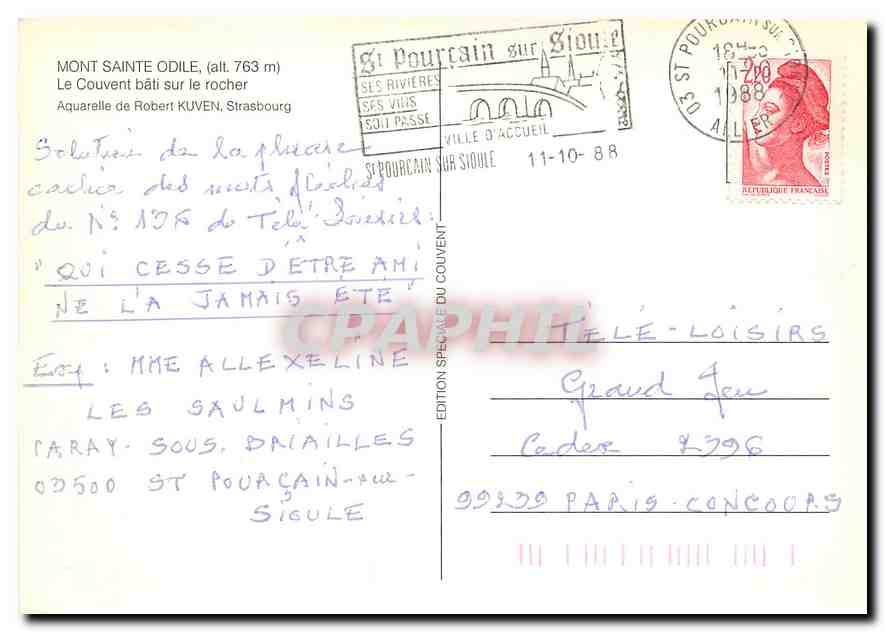 MONT SAINTE ODILE, (alt. 763 m)
Le Couvent bâti sur le rocher
Aquarelle de Robert KUVEN, Strasbourg
St Pourçain sur Sioule
SES RIVIÈRES
SES VINS
SON PASSÉ
VILLE D'ACCUEIL
ST POURCAIN SUR SIOULE 11-10-88
03 ST POURCAIN SUR
18H
11-10
1988
ALLIER
2,20
POSTES
REPUBLIQUE FRANÇAISE
Solution de la phrase
cachée des mots fléchés
du N° 136 de Télé-Loisirs :
"QUI CESSE D'ÊTRE AMI
NE L'A JAMAIS ÉTÉ"
Exp : MME ALLEXELINE
LES SAULMINS
PARAY-SOUS-BRIAILLES
03500 ST POURÇAIN-sur-
SIOULE
EDITION SPECIALE DU COUVENT
CPAPHIL
TÉLÉ-LOISIRS
Grand Jeu
Cedex 2396
99239 PARIS-CONCOURS